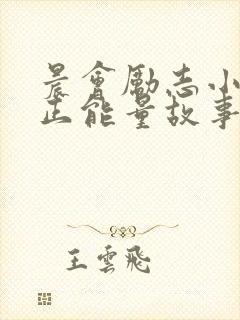 晨會勵志小
正能量故事
王雲飛